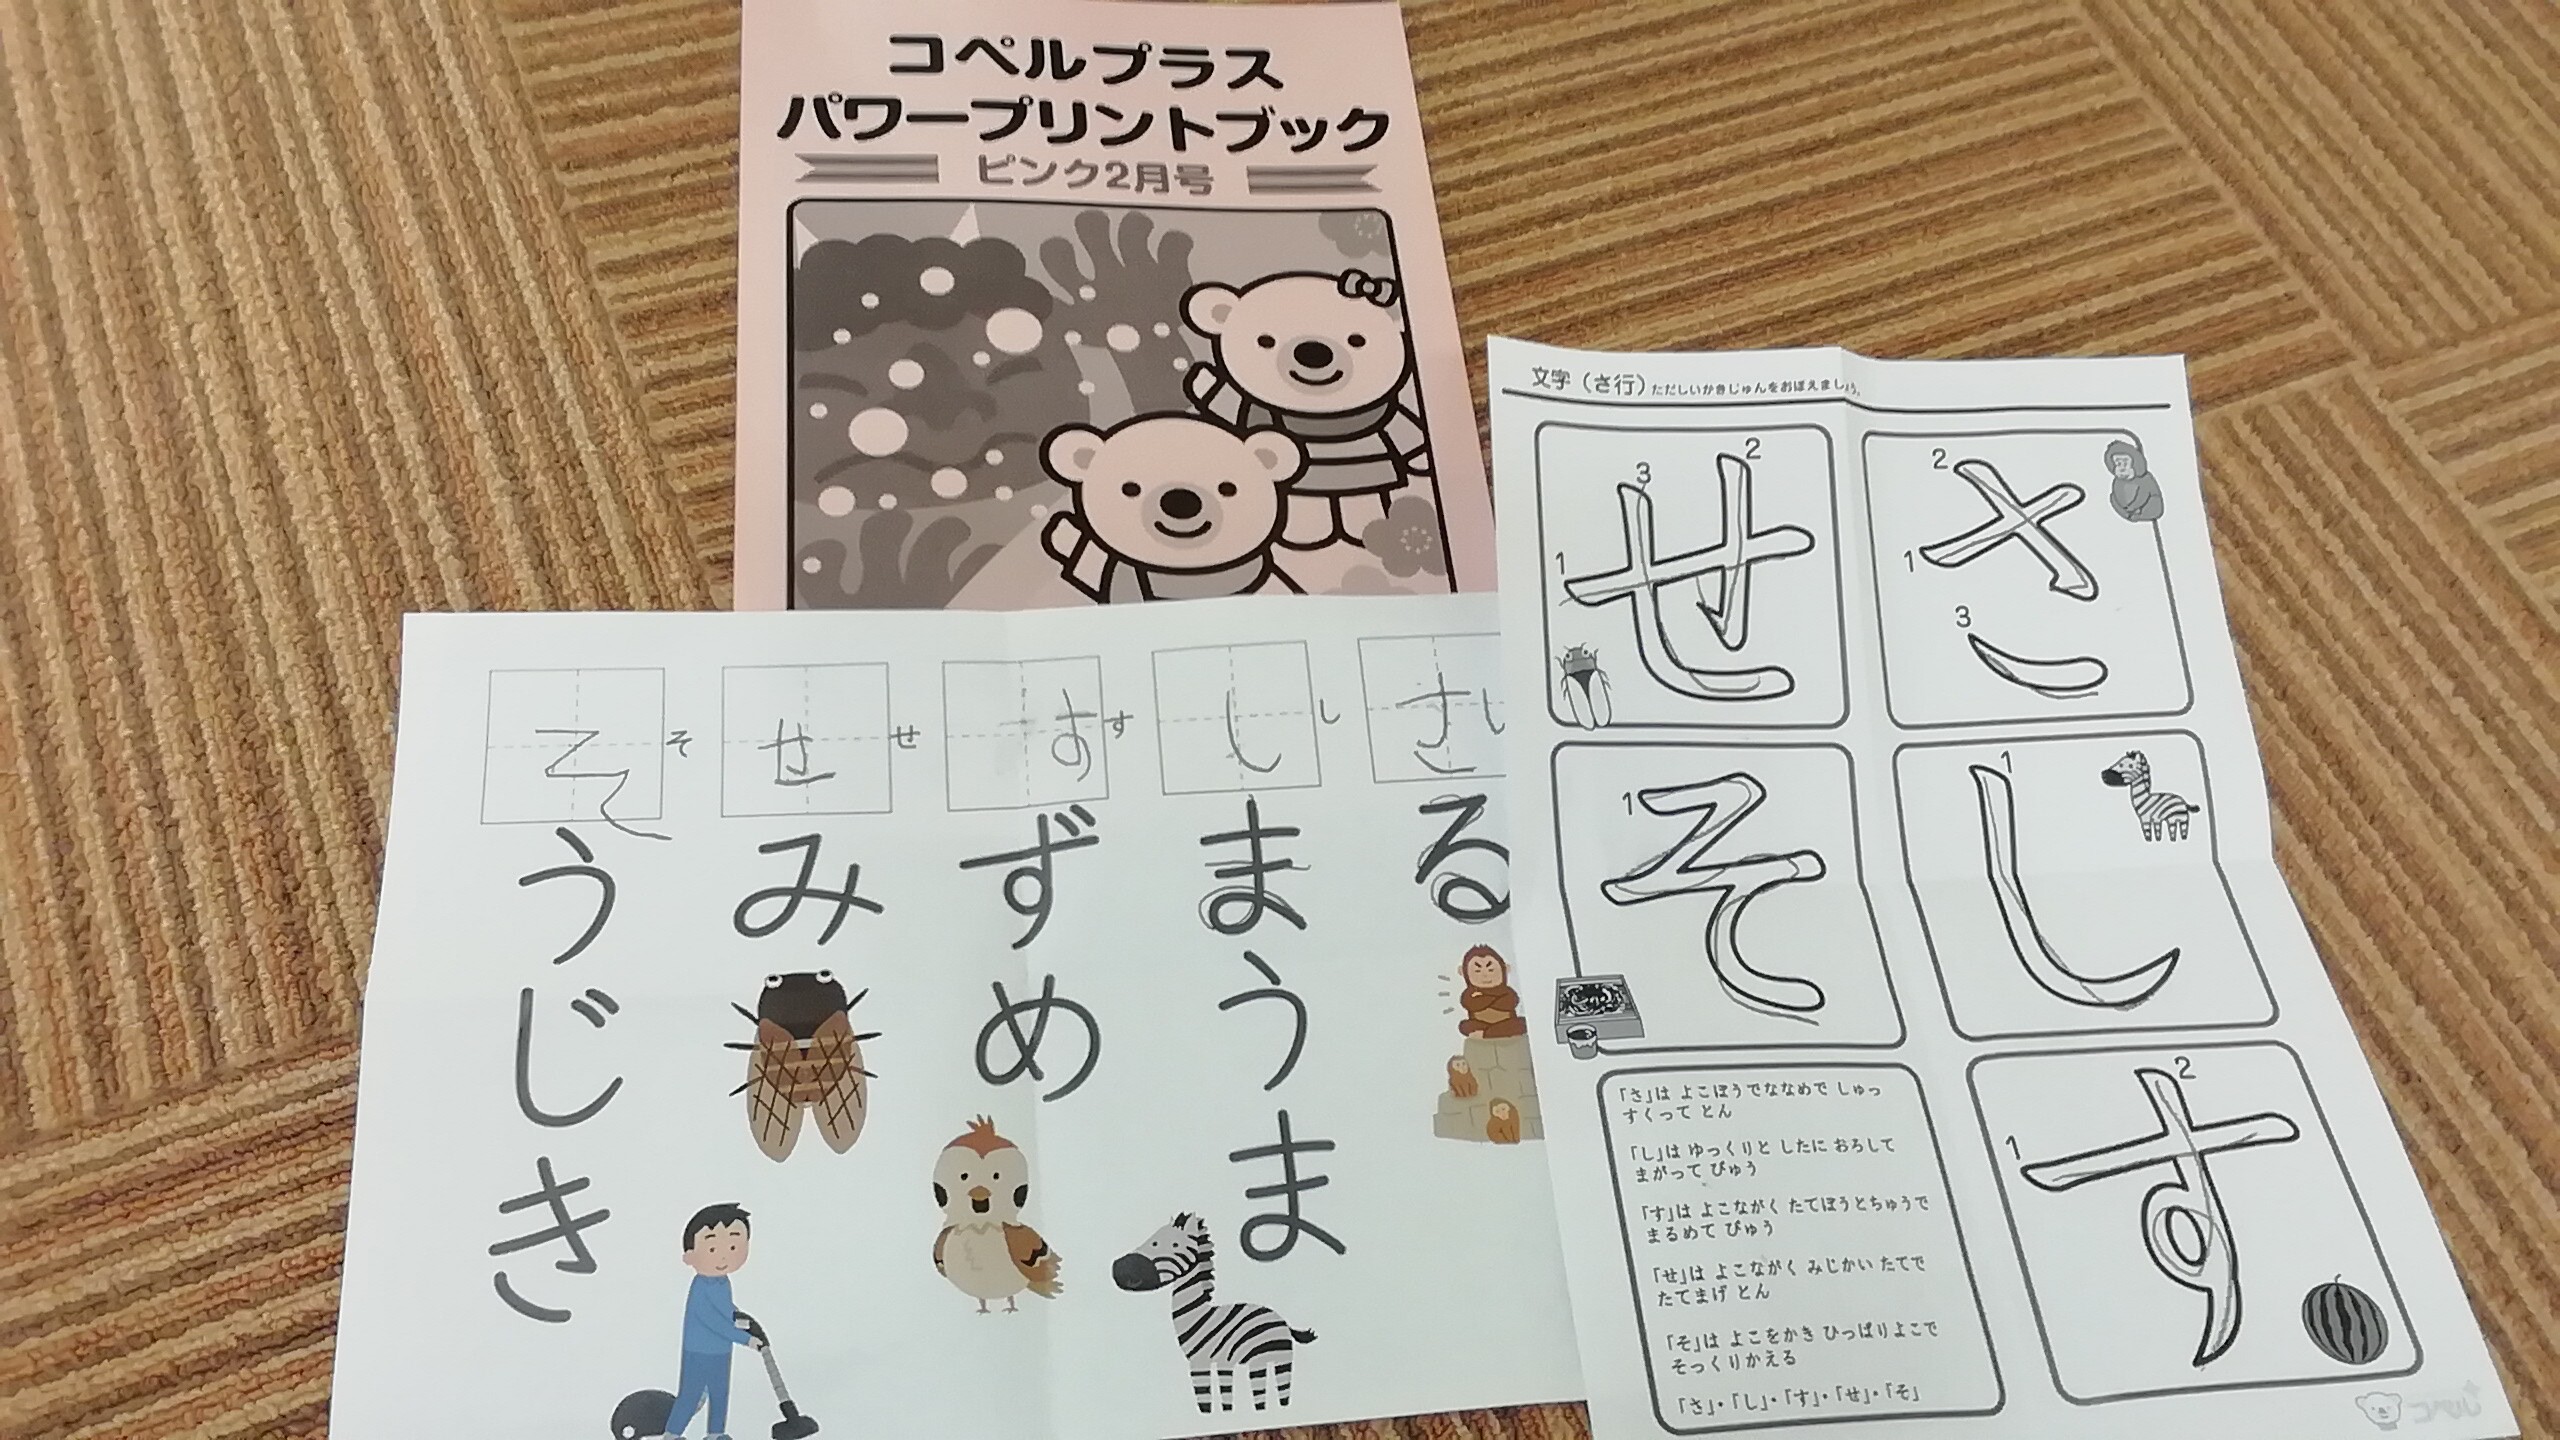 コペルプラス
パワープリントブック
ピンク2月号
文字（さ行）ただしいかきじゅんをおぼえましょう。
さ
1
2
3
し
1
す
1
2
せ
1
2
3
そ
1
「さ」は よこぼうでななめで しゅっ
すくって とん
「し」は ゆっくりと したに おろして
まがって びゅう
「す」は よこながく たてぼうとちゅうで
まるめて びゅう
「せ」は よこながく みじかい たてで
たてまげ とん
「そ」は よこをかき ひっぱりよこで
そっくりかえる
「さ」・「し」・「す」・「せ」・「そ」
コペル
さ
る
し し
まうま
す す
ずめ
せ せ
み
そ そ
うじき